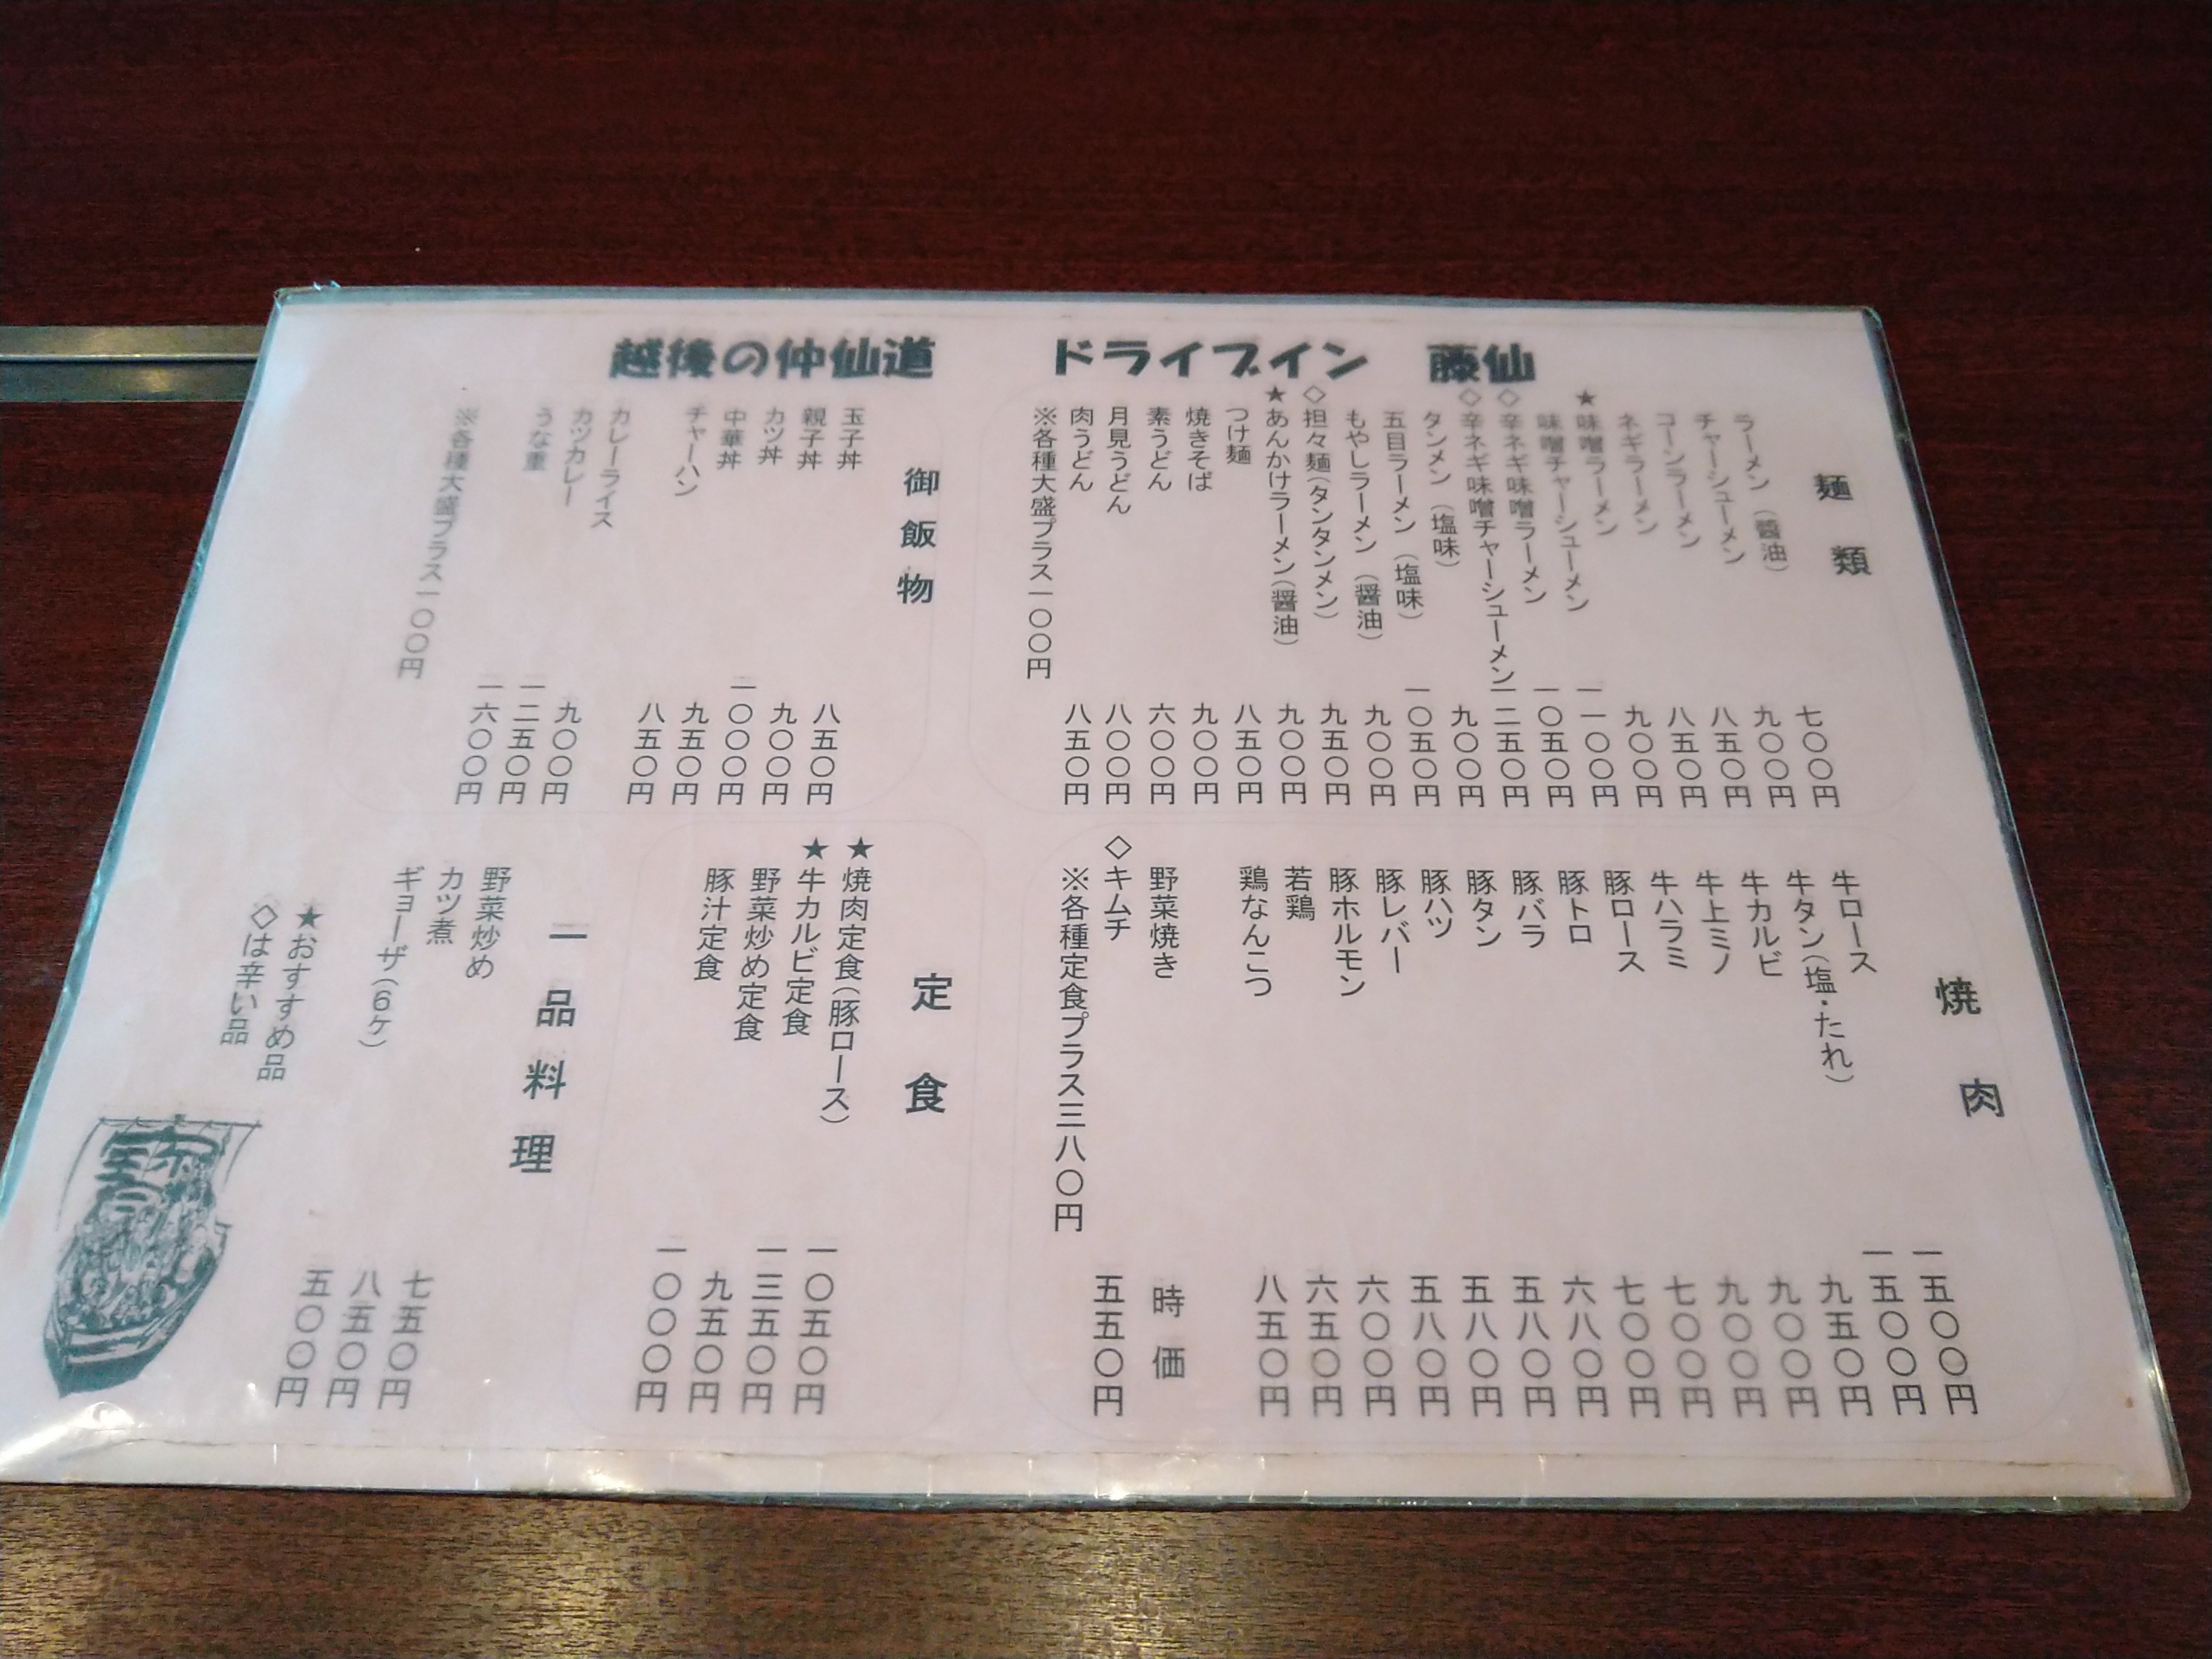 越後の仲仙道　ドライブイン　藤仙
麺類
ラーメン（醤油） 七〇〇円
チャーシューメン 九〇〇円
コーンラーメン 八五〇円
ネギラーメン 八五〇円
★味噌ラーメン 九〇〇円
味噌チャーシューメン 一一〇〇円
◇辛ネギ味噌ラーメン 一〇五〇円
◇辛ネギ味噌チャーシューメン 一二五〇円
タンメン（塩味） 九〇〇円
五目ラーメン（塩味） 一〇五〇円
もやしラーメン（醤油） 九〇〇円
◇担々麺（タンタンメン） 九五〇円
★あんかけラーメン（醤油） 九〇〇円
つけ麺 八五〇円
焼きそば 九〇〇円
素うどん 六〇〇円
月見うどん 八〇〇円
肉うどん 八五〇円
※各種大盛プラス一〇〇円
御飯物
玉子丼 八五〇円
親子丼 九〇〇円
カツ丼 一〇〇〇円
中華丼 九五〇円
チャーハン 八五〇円
カレーライス 九〇〇円
カツカレー 一二五〇円
うな重 一六〇〇円
※各種大盛プラス一〇〇円
焼肉
牛ロース 一五〇〇円
牛タン（塩・たれ） 一五〇〇円
牛カルビ 九五〇円
牛上ミノ 九〇〇円
牛ハラミ 九〇〇円
豚ロース 七〇〇円
豚トロ 七〇〇円
豚バラ 六八〇円
豚タン 五八〇円
豚ハツ 五八〇円
豚レバー 五八〇円
豚ホルモン 六〇〇円
若鶏 六五〇円
鶏なんこつ 八五〇円
野菜焼き 時価
◇キムチ 五五〇円
※各種定食プラス三八〇円
定食
★焼肉定食（豚ロース） 一〇五〇円
★牛カルビ定食 一三五〇円
野菜炒め定食 九五〇円
豚汁定食 一〇〇〇円
一品料理
野菜炒め 七五〇円
カツ煮 八五〇円
ギョーザ（6ケ） 五〇〇円
★おすすめ品
◇は辛い品